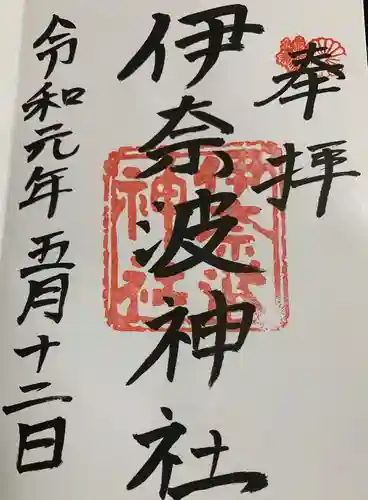 奉拝
伊奈波神社
伊奈波
神社
令和元年五月十二日